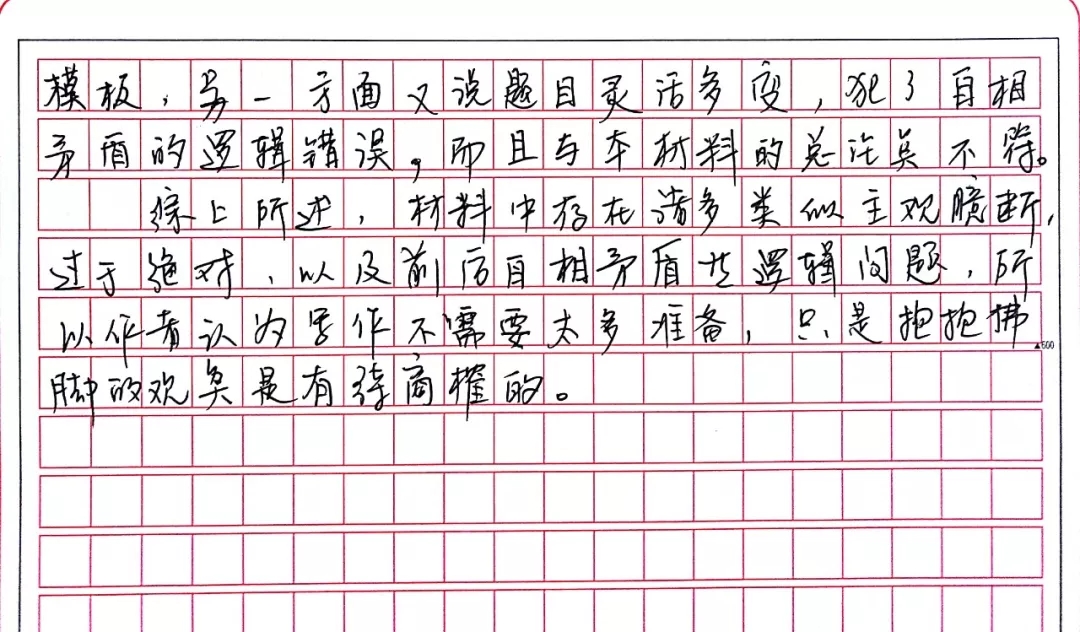 模板，另一方面又说题目灵活多变，犯了自相
矛盾的逻辑错误，而且与本材料的总论点不符。
综上所述，材料中存在诸多类似主观臆断，
过于绝对，以及前后自相矛盾等逻辑问题，所
以作者认为写作不需要太多准备，只是抱抱拂
脚的观点是有待商榷的。
▲500